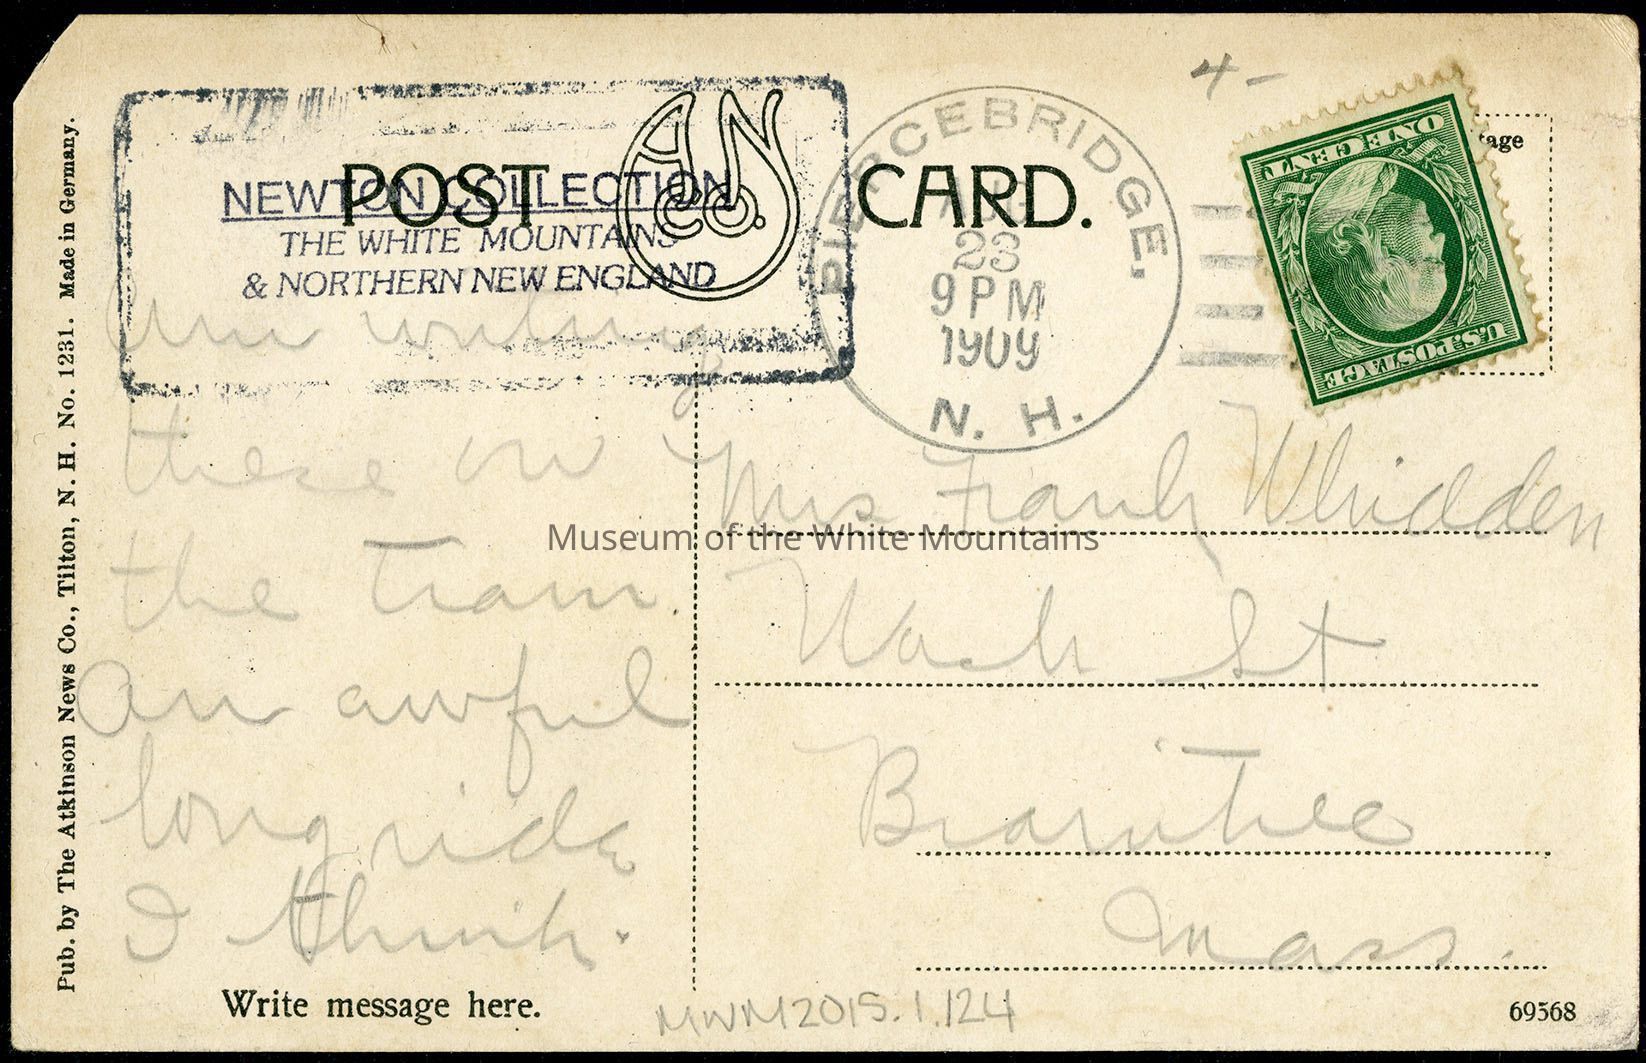 4-
POST CARD.
A N Co.
NEWTON COLLECTION
THE WHITE MOUNTAINS
& NORTHERN NEW ENGLAND
PIERCEBRIDGE,
AUG
23
9 PM
1909
N. H.
ONE CENT
U.S. POSTAGE
age
Am writing
these on
the train.
An awful
long ride
I think.
Mrs Frank Whidden
Wash St
Braintree
Mass.
Museum of the White Mountains
Write message here.
MWM2015.1.124
69568
Pub. by The Atkinson News Co., Tilton, N. H. No. 1231. Made in Germany.